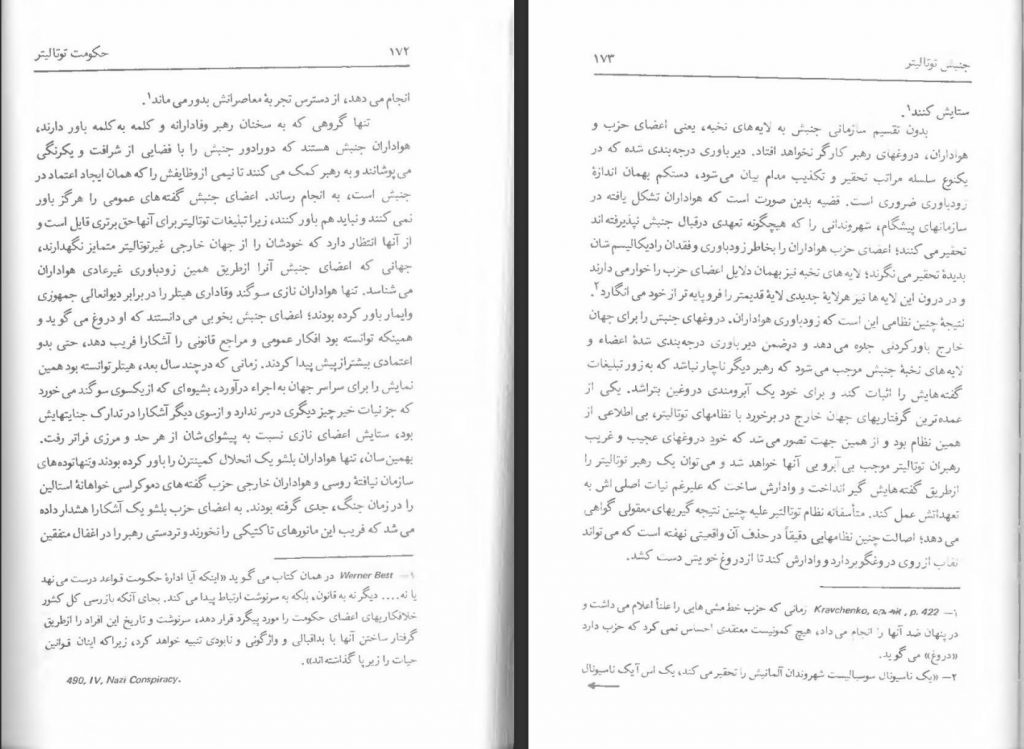 حکومت توتالیتر
۱۷۲
انجام می دهد، از دسترس تجربهٔ معاصرانش بدور می ماند۱.
تنها گروهی که به سخنان رهبر وفادارانه و کلمه به کلمه باور دارند،
هواداران جنبش هستند که دورادور جنبش را با فضایی از شرافت و یکرنگی
می پوشانند و به رهبر کمک می کنند تا نیمی از وظایفش را که همان ایجاد اعتماد در
جنبش است، به انجام رساند. اعضای جنبش گفته های عمومی را هرگز باور
نمی کنند و نباید هم باور کنند، زیرا تبلیغات توتالیتر برای آنها حق برتری قایل است و
از آنها انتظار دارد که خودشان را از جهان خارجی غیرتوتالیتر متمایز نگهدارند،
جهانی که اعضای جنبش آنرا ازطریق همین زودباوری غیرعادی هواداران
می شناسد. تنها هواداران نازی سوگند وفاداری هیتلر را در برابر دیوانعالی جمهوری
وایمار باور کرده بودند؛ اعضای جنبش بخوبی می دانستند که او دروغ می گوید و
همینکه توانسته بود افکار عمومی و مراجع قانونی را آشکارا فریب دهد، حتی بدو
اعتمادی بیشتر از پیش پیدا کردند. زمانی که در چند سال بعد، هیتلر توانسته بود همین
نمایش را برای سراسر جهان به اجراء درآورد، بشیوه ای که از یکسوی سوگند می خورد
که جز نیات خیر چیز دیگری در سر ندارد و ازسوی دیگر آشکارا در تدارک جنایتهایش
بود، ستایش اعضای نازی نسبت به پیشوای شان از هر حد و مرزی فراتر رفت.
بهمین سان، تنها هواداران بلشو یک انحلال کمینترن را باور کرده بودند و تنها توده های
سازمان نیافتهٔ روسی و هواداران خارجی حزب گفته های دموکراسی خواهانهٔ استالین
را در زمان جنگ، جدی گرفته بودند. به اعضای حزب بلشو یک آشکارا هشدار داده
می شد که فریب این مانورهای تاکتیکی را نخورند و تردستی رهبر را در اغفال متفقین
۱— Werner Best در همان کتاب می گوید «اینکه آیا ادارهٔ حکومت قواعد درست می نهد
یا نه.... دیگر نه به قانون، بلکه به سرنوشت ارتباط پیدا می کند. بجای آنکه بازرسی کل کشور
خلافکاریهای اعضای حکومت را مورد پیگرد قرار دهد، سرنوشت و تاریخ این افراد را ازطریق
گرفتار ساختن آنها با بداقبالی و واژگونی و نابودی تنبیه خواهد کرد، زیرا که اینان قوانین
حیات را زیر پا گذاشته اند».
490, IV, Nazi Conspiracy.
جنبش توتالیتر
۱۷۳
ستایش کنند۱.
بدون تقسیم سازمانی جنبش به لایه های نخبه، یعنی اعضای حزب و
هواداران، دروغهای رهبر کارگر نخواهد افتاد. دیرباوری درجه بندی شده که در
یکنوع سلسله مراتب تحقیر و تکذیب مدام بیان می شود، دستکم بهمان اندازهٔ
زودباوری ضروری است. قضیه بدین صورت است که هواداران تشکل یافته در
سازمانهای پیشگام، شهروندانی را که هیچگونه تعهدی درقبال جنبش نپذیرفته اند
تحقیر می کنند؛ اعضای حزب هواداران را بخاطر زودباوری و فقدان رادیکالیسم شان
بدیدهٔ تحقیر می نگرند؛ لایه های نخبه نیز بهمان دلایل اعضای حزب را خوار می دارند
و در درون این لایه ها نیز هر لایهٔ جدیدی لایهٔ قدیمتر را فروپایه تر از خود می انگارد۲.
نتیجهٔ چنین نظامی این است که زودباوری هواداران، دروغهای جنبش را برای جهان
خارج باورکردنی جلوه می دهد و درضمن دیرباوری درجه بندی شدهٔ اعضاء و
لایه های نخبهٔ جنبش موجب می شود که رهبر دیگر ناچار نباشد که به زور تبلیغات
گفته هایش را اثبات کند و برای خود یک آبرومندی دروغین بتراشد. یکی از
عمده ترین گرفتاریهای جهان خارج در برخورد با نظامهای توتالیتر، بی اطلاعی از
همین نظام بود و از همین جهت تصور می شد که خود دروغهای عجیب و غریب
رهبران توتالیتر موجب بی آبرویی آنها خواهد شد و می توان یک رهبر توتالیتر را
ازطریق گفته هایش گیر انداخت و وادارش ساخت که علیرغم نیات اصلی اش به
تعهداتش عمل کند. متأسفانه نظام توتالتیر علیه چنین نتیجه گیریهای معقولی گواهی
می دهد؛ اصالت چنین نظامهایی دقیقاً در حذف آن واقعیتی نهفته است که می تواند
نقاب از روی دروغگو بردارد و وادارش کند تا از دروغ خویش دست کشد.
۱— Kravchenko, , p. 422 زمانی که حزب خط مشی هایی را علناً اعلام می داشت و
در پنهان ضد آنها را انجام می داد، هیچ کمونیست معتقدی احساس نمی کرد که حزب دارد
«دروغ» می گوید.
۲— «یک ناسیونال سوسیالیست شهروندان آلمانیش را تحقیر می کند، یک اس آ یک ناسیونال